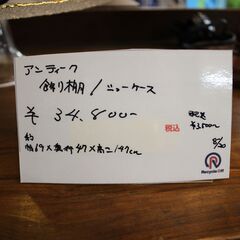 アンティーク
飾り棚/ショーケース
¥34,800-
税込
配送
¥3,500〜
8/20
約
幅69×奥行47×高さ147cm
Recycle